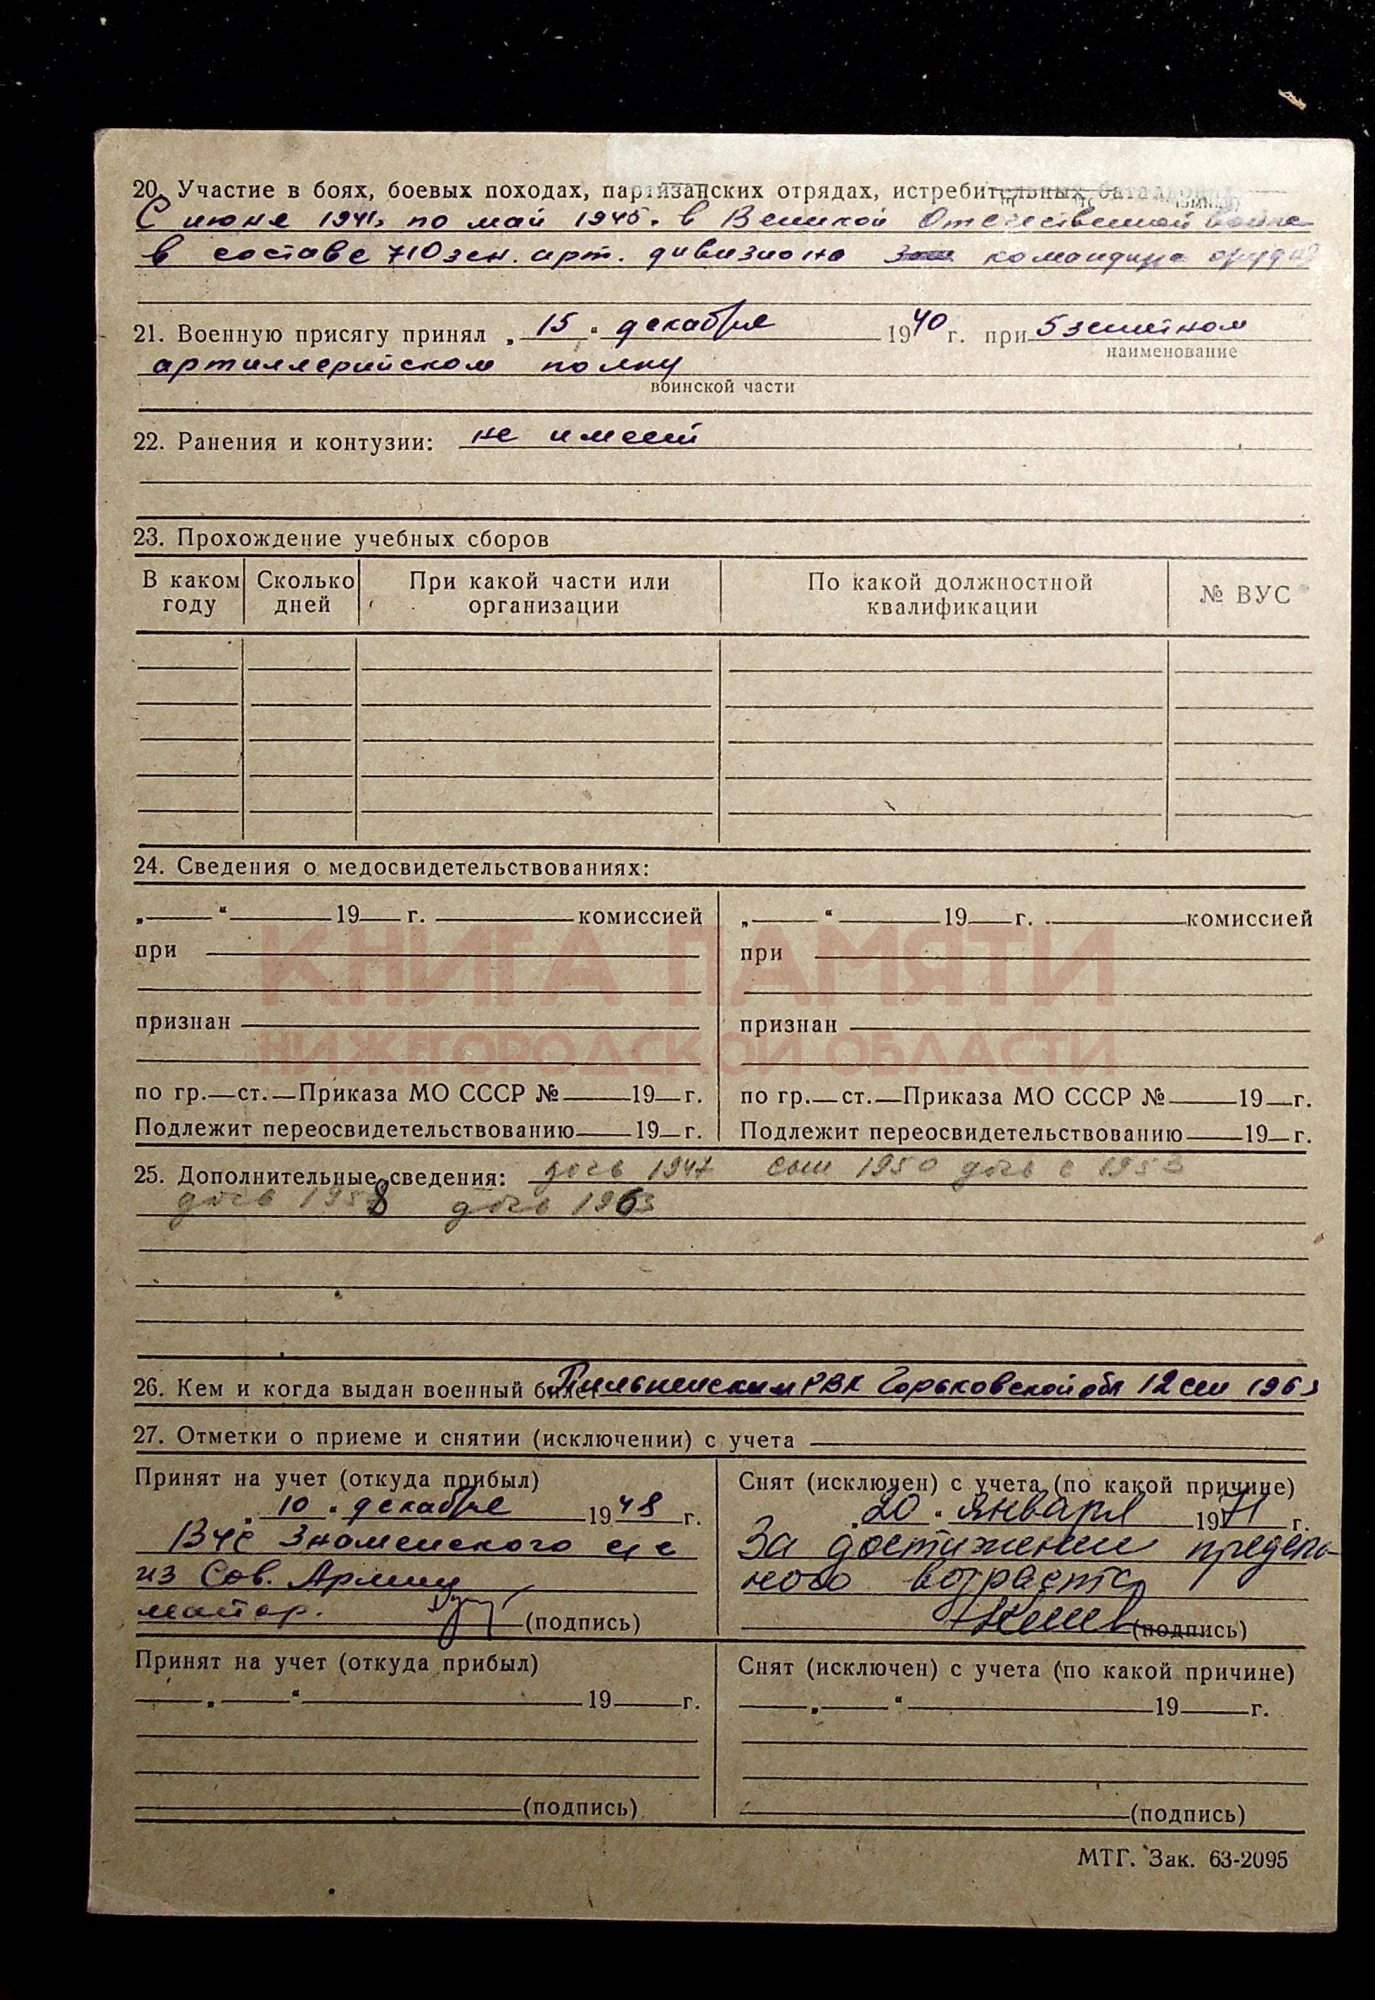 20. Участие в боях, боевых походах, партизанских отрядах, истребительных батальонах
С июня 1941г по май 1945г. в Великой Отечественной войне
в составе 710 зен. арт. дивизиона командира орудия
21. Военную присягу принял „ 15 “ декабря 1940 г. при 5 зенитном
наименование
артиллерийском полку
воинской части
22. Ранения и контузии: не имеет
23. Прохождение учебных сборов
В каком году Сколько дней При какой части или организации По какой должностной квалификации № ВУС
24. Сведения о медосвидетельствованиях:
„ “ 19 г. комиссией „ “ 19 г. комиссией
при при
КНИГА ПАМЯТИ
признан признан
НИЖЕГОРОДСКОЙ ОБЛАСТИ
по гр. ст. Приказа МО СССР № 19 г. по гр. ст. Приказа МО СССР № 19 г.
Подлежит переосвидетельствованию 19 г. Подлежит переосвидетельствованию 19 г.
25. Дополнительные сведения: дочь 1947 сын 1950 дочь 1953
дочь 1958 дочь 1963
26. Кем и когда выдан военный билет Пильненским РВК Горьковской обл 12 сен 1963
27. Отметки о приеме и снятии (исключении) с учета
Принят на учет (откуда прибыл) Снят (исключен) с учета (по какой причине)
„ 10 “ декабря 1948 г. „ 20 “ января 1971 г.
ВУС Знаменского с/с За достижении предель-
из Сов. Армии ного возраста
майор. (подпись) (подпись)
Принят на учет (откуда прибыл) Снят (исключен) с учета (по какой причине)
„ “ 19 г. „ “ 19 г.
(подпись) (подпись)
МТГ. Зак. 63-2095